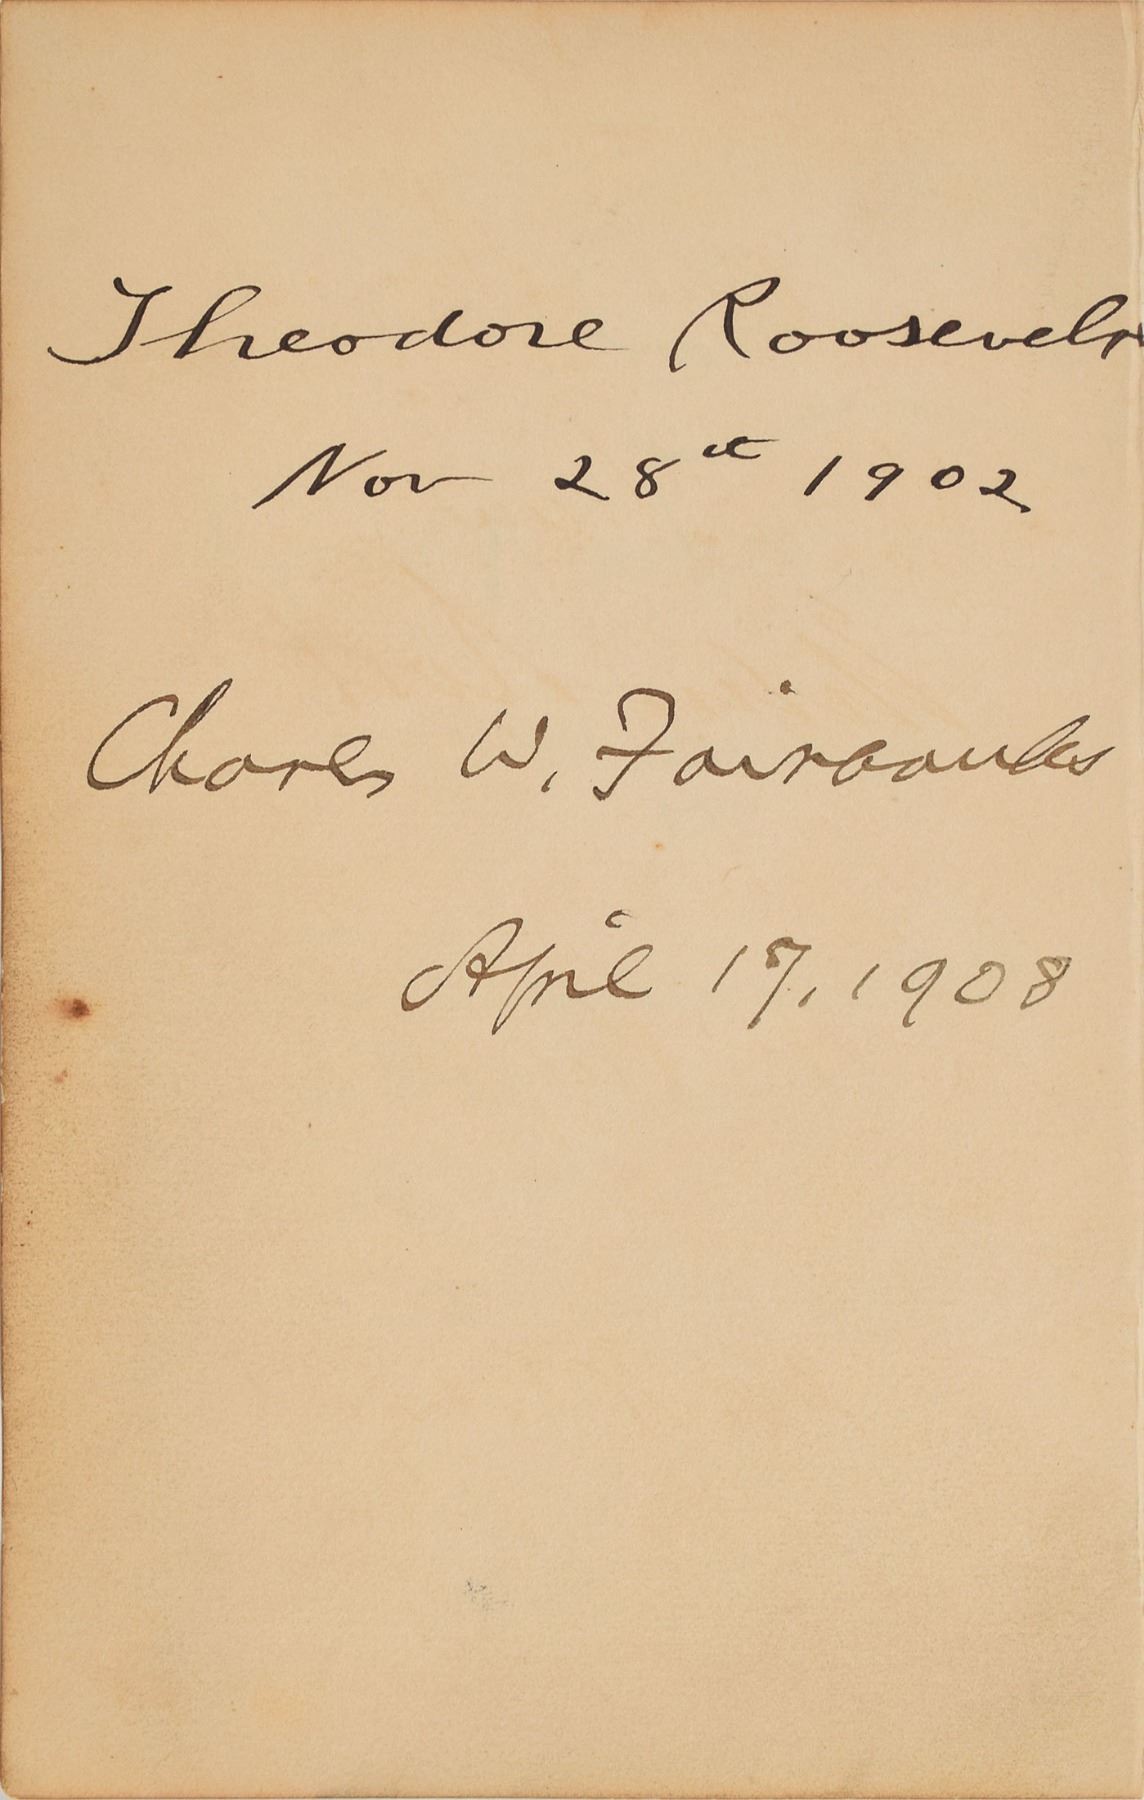 Theodore Roosevelt
Nov 28th 1902
Charles W. Fairbanks
April 17, 1908